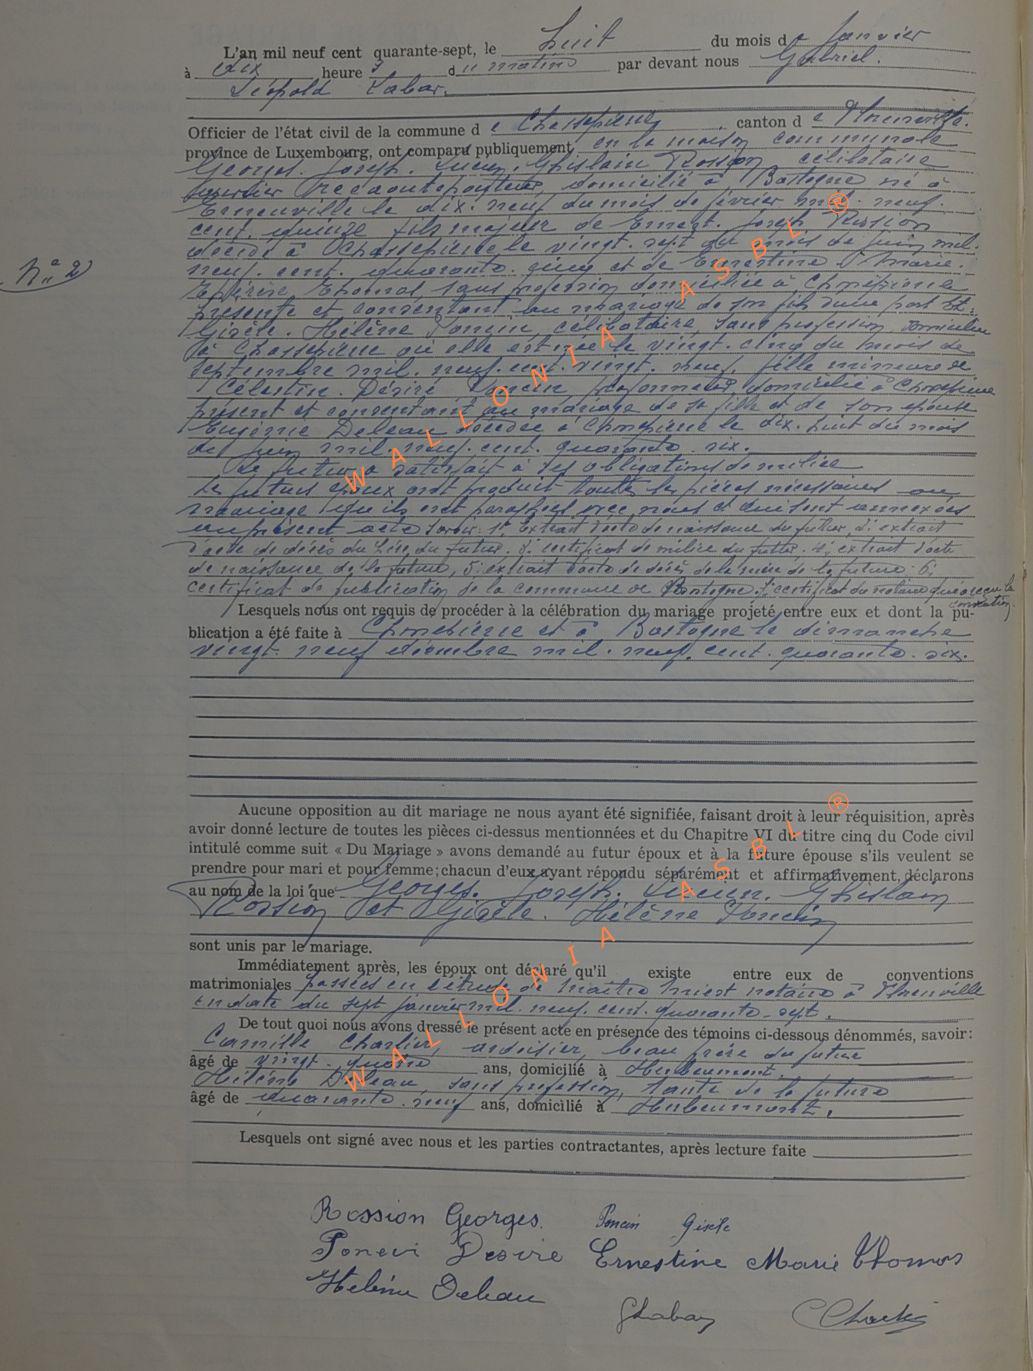 L'an mil neuf cent quarante-sept, le huit du mois de Janvier
à dix heures du matin par devant nous Gabriel.
Léopold Labar.
Officier de l'état civil de la commune de Chassepierre, canton de Florenville.
province de Luxembourg, ont comparu publiquement en la maison communale
Georges. Joseph. Lucien. Ghislain Rossion, célibataire
domicilié à Bastogne né à
le dix. neuf du mois de février mil. neuf.
cent. quinze fils majeur de Ernest. Joseph Rossion
décédé à Chassepierre le vingt. sept du mois de juin mil.
neuf. cent. quarante. cinq et de Ernestine Marie.
Thomas sans profession domiciliée à Chassepierre
présente et consentant au mariage de son fils d'une part Et.
Gisèle. Hélène Poncin, célibataire, sans profession domiciliée
à Chassepierre où elle est née le vingt. cinq du mois de
septembre mil. neuf. cent. vingt. neuf, fille mineure de
Célestin. Désiré Poncin domicilié à Chassepierre
présent et consentant au mariage de sa fille et de son épouse
Eugénie Deleau décédée à Chassepierre le dix. huit du mois
de juin mil. neuf. cent. quarante. six.
Le futur a satisfait à ses obligations de milice
Les futurs époux ont produit toutes les pièces nécessaires au
mariage qu'ils ont paraphées avec nous et qui sont annexées
au présent acte savoir: 1° extrait d'acte de naissance du futur, 2; extrait
d'acte de décès du père du futur. 3; certificat de milice du futur. 4; extrait d'acte
de naissance de la future, 5; extrait d'acte de décès de la mère de la future: 6;
certificat de publication de la commune de Bastogne. 7; certificat du notaire qui a reçu la
convention.
N° 2
Lesquels nous ont requis de procéder à la célébration du mariage projeté entre eux et dont la pu-
blication a été faite à Chassepierre et à Bastogne le dimanche
vingt. neuf décembre mil. neuf. cent. quarante. six.
Aucune opposition au dit mariage ne nous ayant été signifiée, faisant droit à leur réquisition, après
avoir donné lecture de toutes les pièces ci-dessus mentionnées et du Chapitre VI du titre cinq du Code civil
intitulé comme suit « Du Mariage » avons demandé au futur époux et à la future épouse s'ils veulent se
prendre pour mari et pour femme; chacun d'eux ayant répondu séparément et affirmativement, déclarons
au nom de la loi que Georges. Joseph. Lucien. Ghislain
Rossion et Gisèle. Hélène Poncin
sont unis par le mariage.
Immédiatement après, les époux ont déclaré qu'il existe entre eux de conventions
matrimoniales passées en l'étude de Maître notaire à Florenville
en date du sept janvier mil. neuf. cent. quarante. sept.
De tout quoi nous avons dressé le présent acte en présence des témoins ci-dessous dénommés, savoir:
Camille Charlier, ardoisier, beau frère du futur
âgé de vingt. quatre ans, domicilié à Herbeumont.
Hélène Deleau, sans profession, tante de la future
âgé de quarante. neuf ans, domicilié à Herbeumont.
Lesquels ont signé avec nous et les parties contractantes, après lecture faite
Rossion Georges. Poncin Gisèle
Désiré Ernestine Marie Thomas
Hélène Deleau
GLabar
WALLONIA ASBL ®
WALLONIA ASBL ®